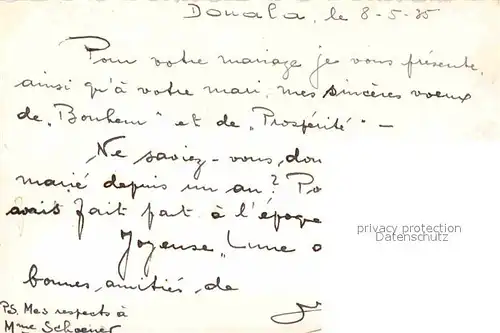 Douala, le 8-5-35
Pour votre mariage je vous présente,
ainsi qu'à votre mari, mes sincères voeux
de „Bonheur" et de „Prospérité" —
Ne saviez-vous, don
marié depuis un an? Po
avais fait part à l'époque
Joyeuse „Lune
bonnes amitiés, de
P.S. Mes respects à
Mme Schoener
privacy protection
Datenschutz